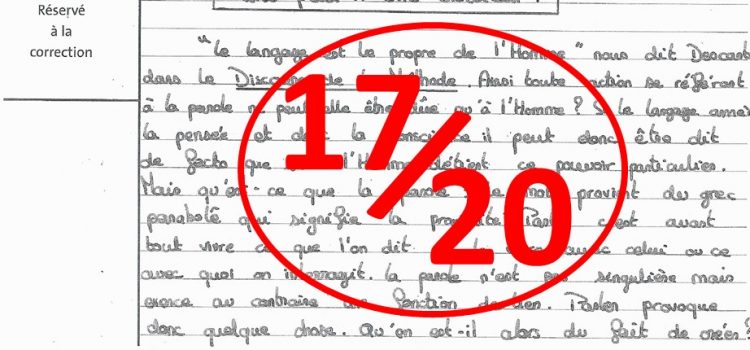 Réservé
à la
correction
"Le langage est le propre de l'Homme" nous dit Descart
dans le Discours de la Méthode. Ainsi toute action se référant
à la parole ne peut elle être dûe qu'à l'Homme ? Si le langage amè
la pensée et donc la conscience il peut donc être dit
de facto que l'Homme détient ce pouvoir particulier.
Mais qu'est-ce que la parole mot provient du grec
parabolê qui signifie la Parler c'est avant
tout vivre ce que l'on dit. avec celui ou ce
avec quoi on interragit. La parole n'est pas singulière mais
exerce au contraire une fonction de lien. Parler provoque
donc quelque chose. Qu'en est-il alors du fait de créer ?
17/20